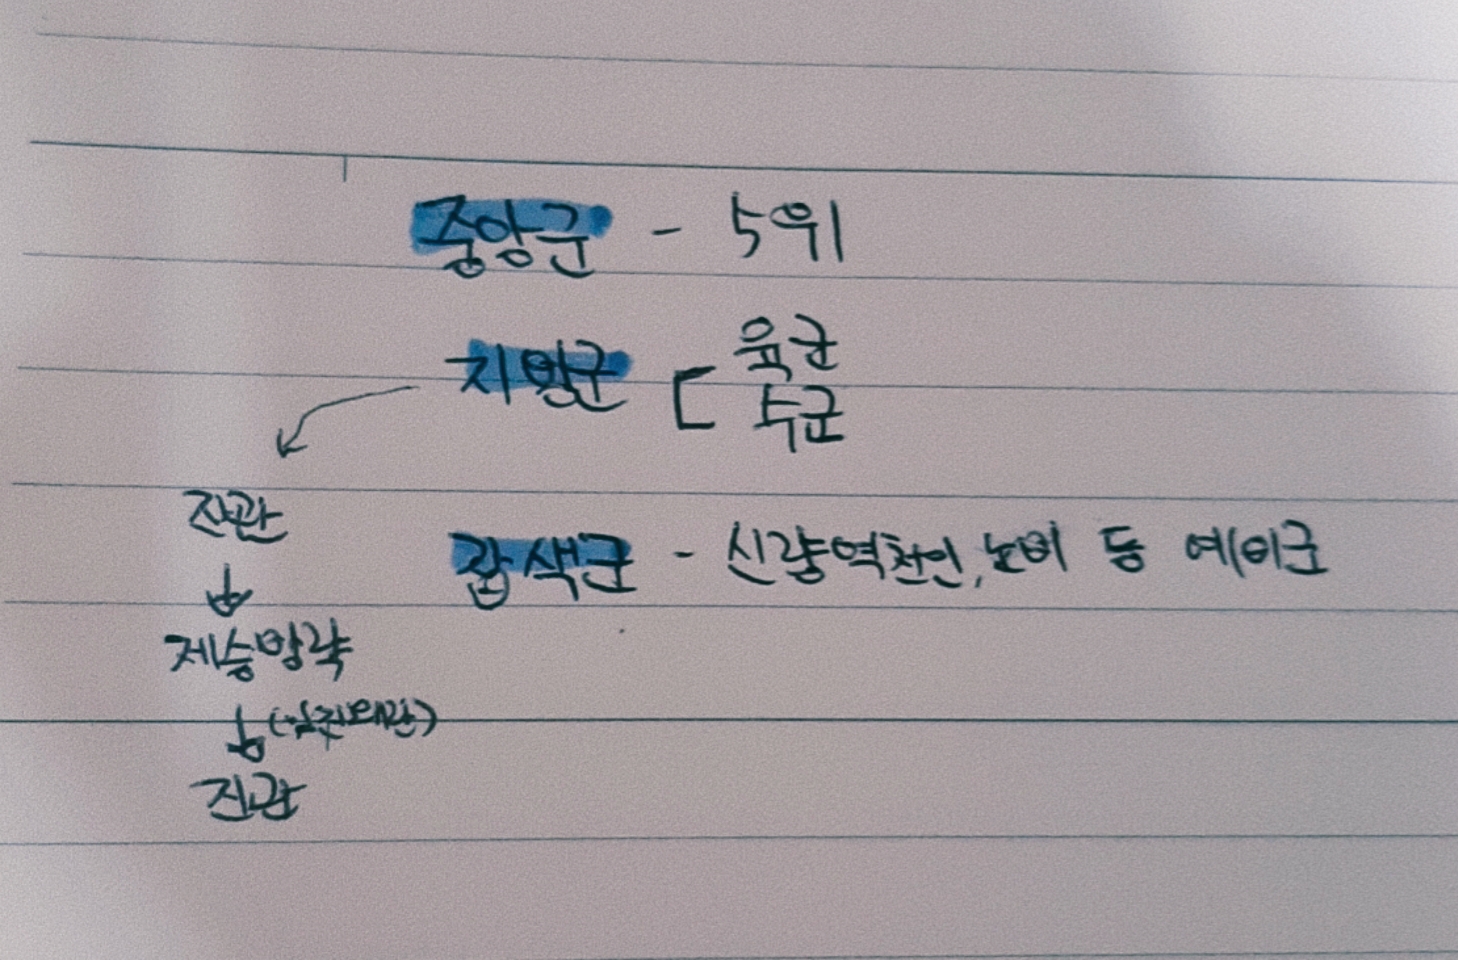 중앙군 - 5위
지방군 [ 육군
수군
진관
잡색군 - 신량역천인, 노비 등 예비군
↓
제승방략
↓ (임진왜란)
진관